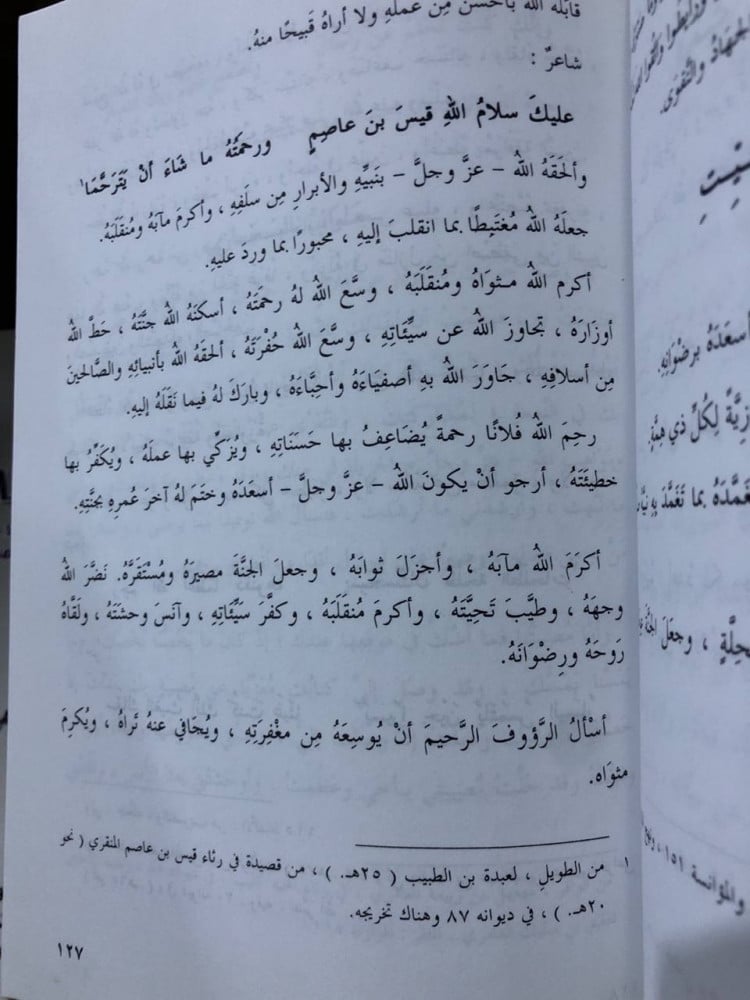 قابله الله بأحسن مِن عملهِ ولا أراهُ قَبيحًا منهُ.
شاعرٌ :
عليكَ سلامُ اللهِ قيسَ بنَ عاصِمٍ ورحمتُهُ ما شَاءَ أنْ يَتَرَحَّمَا١
وألحَقَهُ اللهُ – عزَّ وجلَّ – بنَبيِّهِ والأبرارِ مِن سلَفِهِ ، وأكرمَ مآبَهُ ومُنقَلَبَهُ.
جعلَهُ اللهُ مُغتَبِطًا بما انقلبَ إليهِ ، محبورًا بما وردَ عليهِ.
أكرم اللهُ مثوَاهُ ومُنقَلَبَهُ ، وسَّعَ اللهُ لهُ رحمتَهُ ، أسكنَهُ اللهُ جنَّتَهُ ، حَطَّ اللهُ
أوزارَهُ ، تجاوزَ اللهُ عن سيِّئَاتِهِ ، وسَّعَ اللهُ حُفْرَتَهُ ، ألحقَهُ اللهُ بأنبيائِهِ والصَّالحينَ
مِن أسلافِهِ ، جَاوَرَ اللهُ بهِ أصفيَاءَهُ وأحِبَّاءَهُ ، وبارَكَ لهُ فيما نَقَلَهُ إليهِ.
رحِمَ اللهُ فُلانًا رحمةً يُضَاعِفُ بها حَسَنَاتِهِ ، ويُزَكِّي بها عملَهُ ، ويُكَفِّرُ بها
خطيئَتَهُ ، أرجو أنْ يكونَ اللهُ – عزَّ وجلَّ – أسعَدَهُ وختَمَ لهُ آخرَ عُمرِهِ بجنَّتِهِ.
أكرَمَ اللهُ مآبَهُ ، وأجزَلَ ثوابَهُ ، وجعلَ الجنَّةَ مصيرَهُ ومُسْتَقَرَّهُ. نَضَّرَ اللهُ
وجهَهُ ، وطيَّبَ تَحِيَّتَهُ ، وأكرمَ مُنقَلَبَهُ ، وكفَّرَ سَيِّئَاتِهِ ، وآنَسَ وحشَتَهُ ، ولَقَّاهُ
رَوحَهُ ورِضْوَانَهُ.
أسْألُ الرَّؤوفَ الرَّحيمَ أنْ يُوسِعَهُ مِن مغْفِرَتِهِ ، ويُجَافي عنهُ ثَراهُ ، ويُكرِمَ
مثوَاه.
١ من الطويلِ ، لعبدة بن الطبيب ( ٢٥هـ. ) ، من قصيدة في رثاء قيس بن عاصم المنقري ( نحو
٢٠هـ. ) ، في ديوانه ٨٧ وهناك تخريجه.
١٢٧
الجهادُ والتَّقوَى.
أسعَدَهُ برضْوَانِهِ.
لكُلِّ ذي هِمَّةٍ.
بما تَغَمَّدَ بِهِ
، وجعَلَ الجنَّةَ
والمؤانسة ١٥١ ،